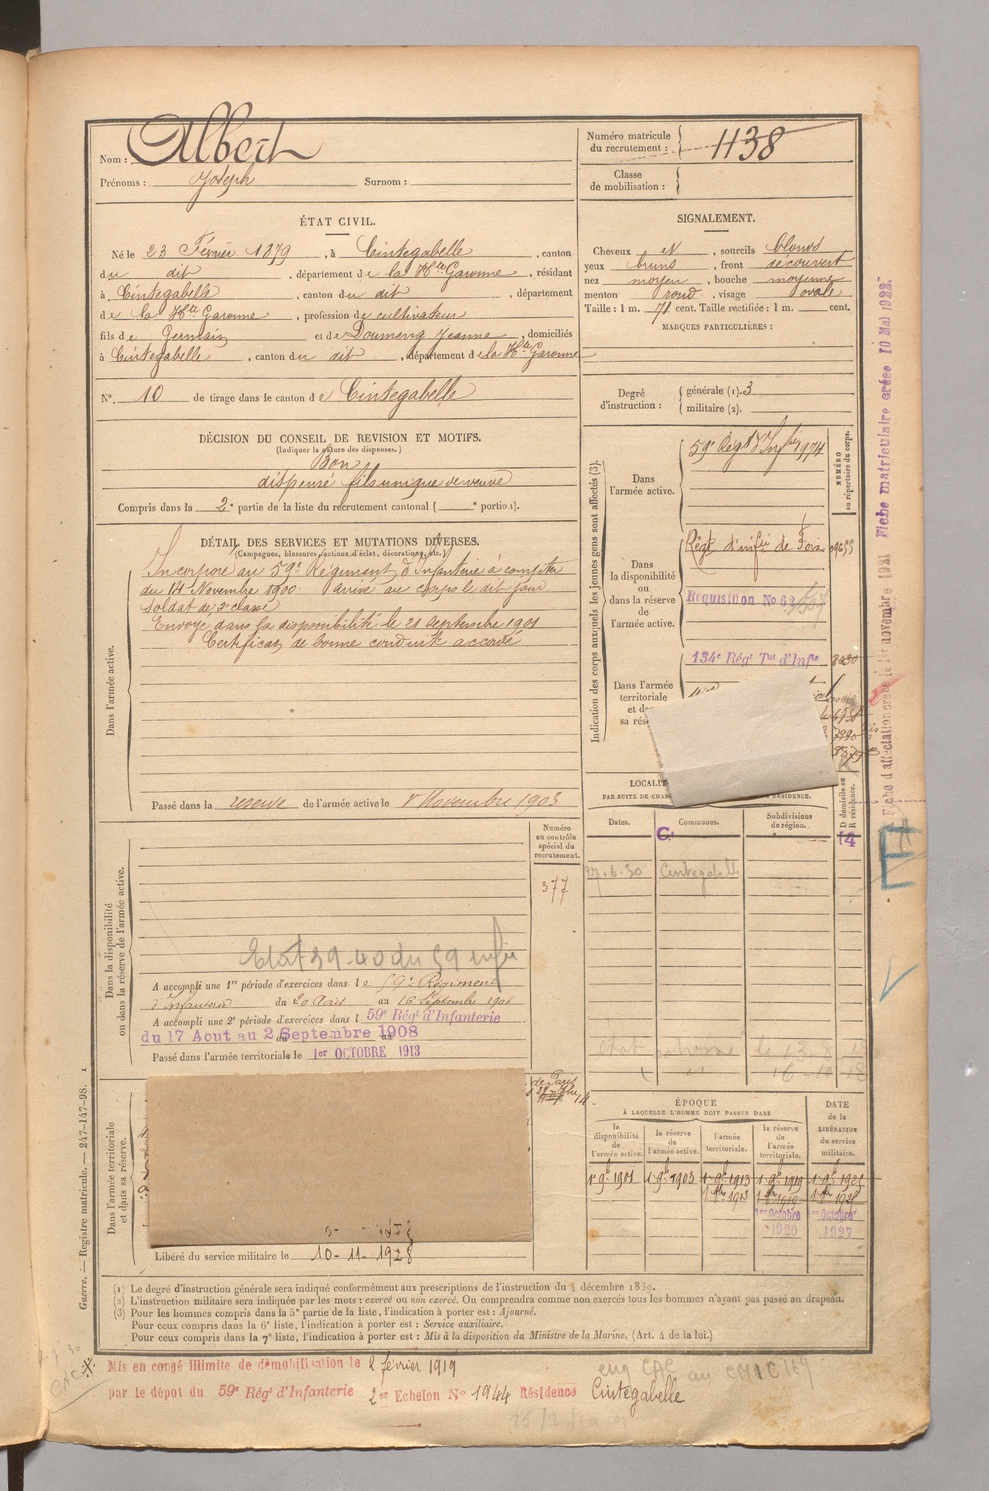 Nom : Albert
Prénoms : Joseph Surnom :
Numéro matricule du recrutement : 1138
Classe de mobilisation :
ÉTAT CIVIL.
Né le 23 Février 1879, à Cintegabelle, canton
du dit, département de la Hte Garonne, résidant
à Cintegabelle, canton du dit, département
de la Hte Garonne, profession de cultivateur
fils de Germain et de Doumeng Jeanne, domiciliés
à Cintegabelle, canton du dit, département de la Hte Garonne
N° 10 de tirage dans le canton de Cintegabelle
SIGNALEMENT.
Cheveux et, sourcils blonds
yeux bruns, front découvert
nez moyen, bouche moyenne
menton rond, visage ovale
Taille : 1 m. 71 cent. Taille rectifiée : 1 m. cent.
MARQUES PARTICULIÈRES :
Degré d'instruction : générale (1). 3
militaire (2).
DÉCISION DU CONSEIL DE REVISION ET MOTIFS.
(Indiquer la nature des dispenses.)
Bon
dispensé fils unique de veuve
Compris dans la 2e partie de la liste du recrutement cantonal ( e portion).
DÉTAIL DES SERVICES ET MUTATIONS DIVERSES.
(Campagnes, blessures, actions d'éclat, décorations, etc.)
Dans l'armée active.
Incorporé au 59e Régiment d'Infanterie à compter
du 14 Novembre 1900. arrivé au corps le dit jour
soldat de 2e classe
Envoyé dans la disponibilité le 21 septembre 1901
Certificat de bonne conduite accordé
Passé dans la réserve de l'armée active le 1r Novembre 1903
Indication des corps auxquels les jeunes gens sont affectés (3).
NUMÉRO au répertoire du corps.
Dans l'armée active.
59e Régt d'Infie 1974
Dans la disponibilité ou dans la réserve de l'armée active.
Régt d'infie de Foix
Requisition No 62
Dans l'armée territoriale
134e Régt Tal d'Infie
LOCALIT
PAR SUITE DE CHANG RÉSIDENCE.
D domicile ou R résidence.
Dates. Communes. Subdivisions de région.
C.
27.6.30 Cintegabelle
Dans la disponibilité ou dans la réserve de l'armée active.
Numéro au contrôle spécial du recrutement.
377
Etat 39-40 du 59 infie
A accompli une 1re période d'exercices dans le 59e Régiment
d'Infanterie du 20 Août au 16 Septembre 1906
A accompli une 2e période d'exercices dans l 59e Régt d'Infanterie
du 17 Aout au 2 Septembre 1908
Passé dans l'armée territoriale le 1er OCTOBRE 1913
Dans l'armée territoriale et dans sa réserve.
Libéré du service militaire le 10-11-1928
ÉPOQUE
À LAQUELLE L'HOMME DOIT PASSER DANS
la disponibilité de l'armée active.
la réserve de l'armée active.
l'armée territoriale.
la réserve de l'armée territoriale.
DATE de la LIBÉRATION du service militaire.
1r 9bre 1901 1r 9bre 1903 1r 9bre 1913 1r 9bre 1919
1er Octobre 1920
1er Octobre 1927
(1) Le degré d'instruction générale sera indiqué conformément aux prescriptions de l'instruction du 4 décembre 1889.
(2) L'instruction militaire sera indiquée par les mots : exercé ou non exercé. On comprendra comme non exercés tous les hommes n'ayant pas passé au drapeau.
(3) Pour les hommes compris dans la 5e partie de la liste, l'indication à porter est : Ajourné.
Pour ceux compris dans la 6e liste, l'indication à porter est : Service auxiliaire.
Pour ceux compris dans la 7e liste, l'indication à porter est : Mis à la disposition du Ministre de la Marine. (Art. 4 de la loi.)
Mis en congé illimité de démobilisation le 2 février 1919
par le dépot du 59e Régt d'Infanterie 2er Echelon No 1944 Résidence Cintegabelle
Guerre. — Registre matricule. — 247-147-98. 1
Fiche d'affectation créée le 1er novembre 1921 Fiche matriculaire créée 10 Mai 1922.